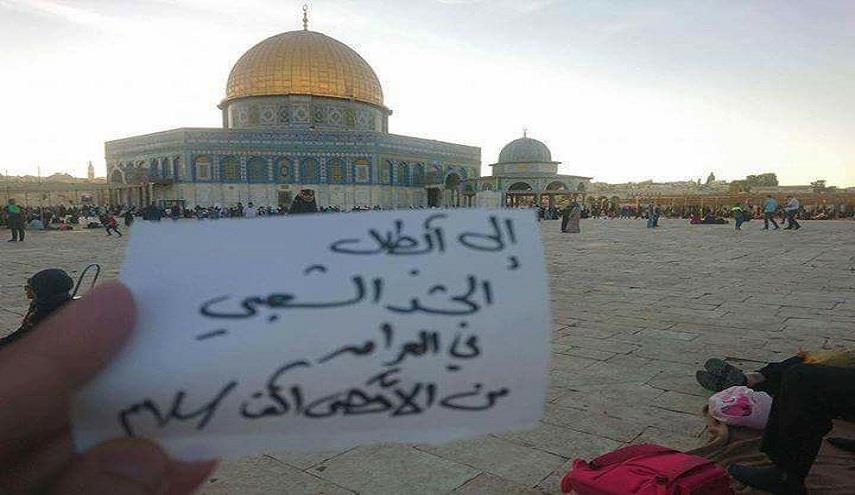 إلى أبطال
الحشد الشعبي
في العراق
من الأقصى ألف سلام